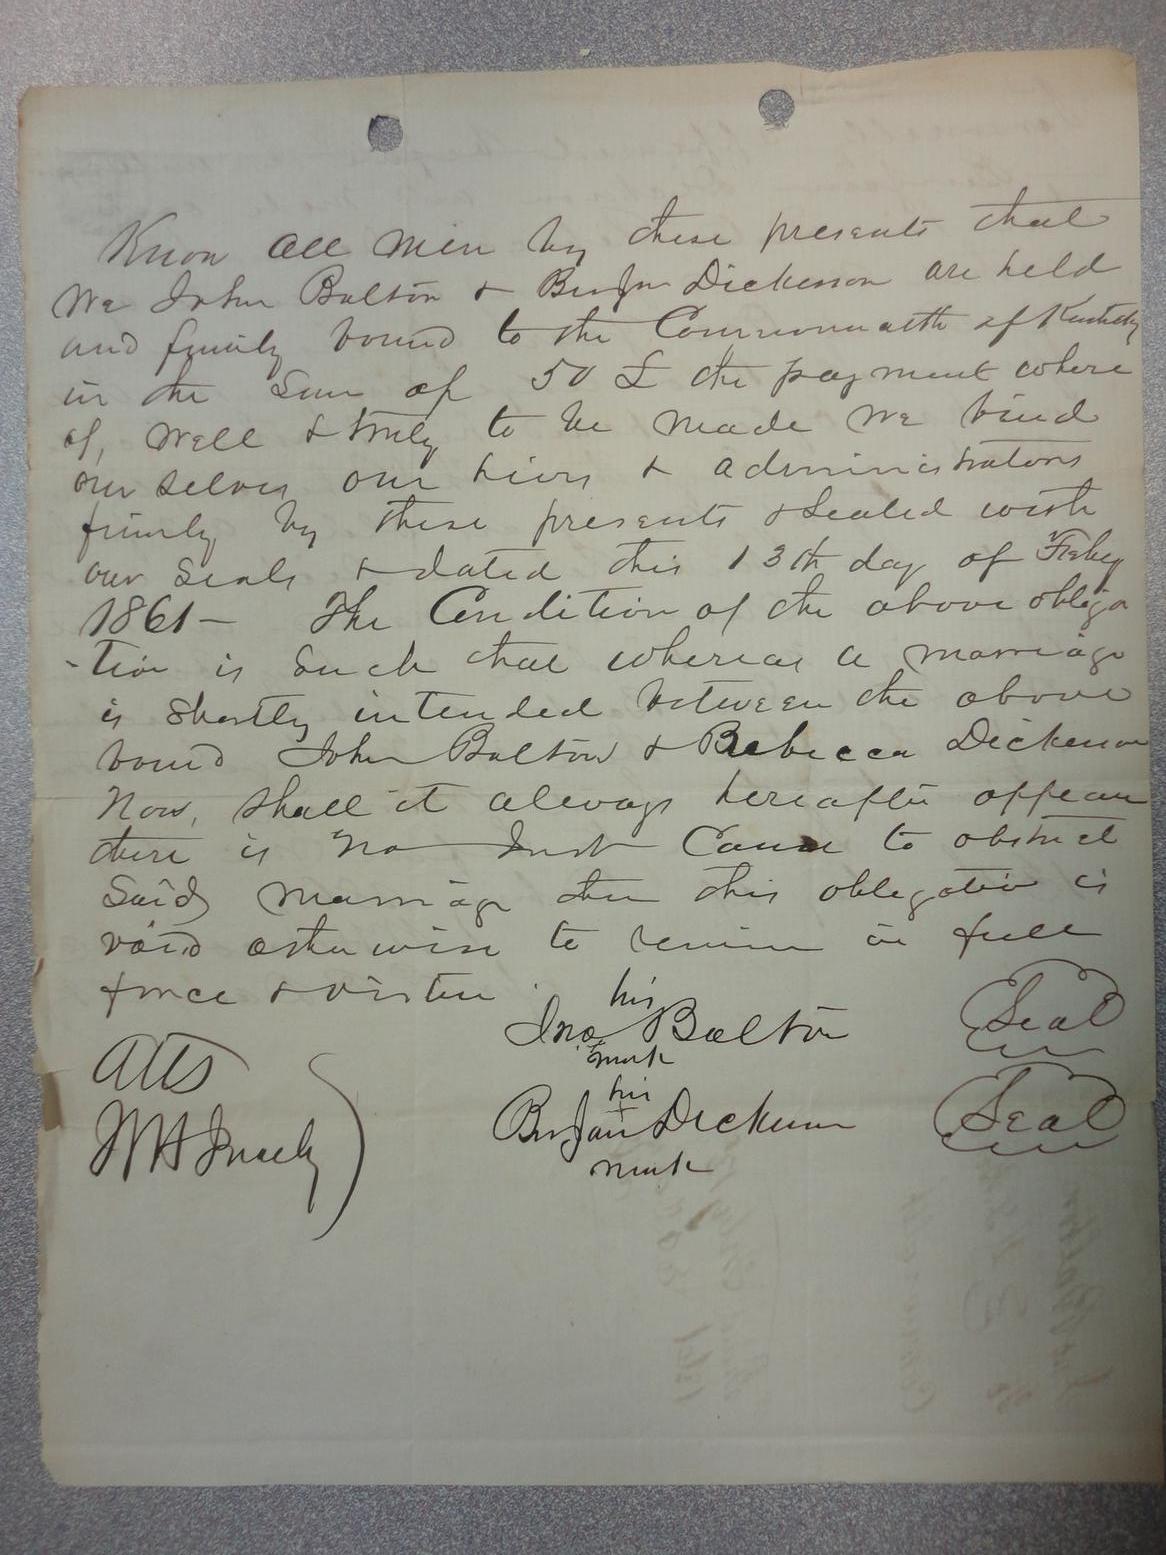 Know all men by these presents that
we John Bolton & Benjn Dickerson are held
and firmly bound to the Commonwealth of Kentucky
in the Sum of 50 £ the payment where
of, well & truly to be made we bind
our selves our heirs & administrators
firmly by these presents & sealed with
our seals & dated this 13th day of
1861 - The Condition of the above obliga
-tion is such that whereas a marriage
is shortly intended between the above
bound John Bolton & Rebecca Dickerson
Now, shall it always hereafter appear
there is no Just Cause to obstruct
said marriage then this obligation is
void otherwise to remain in full
force & virtue.
his
Jno Bolton Seal
mark
Atts
his
Benjam Dickerson Seal
mark